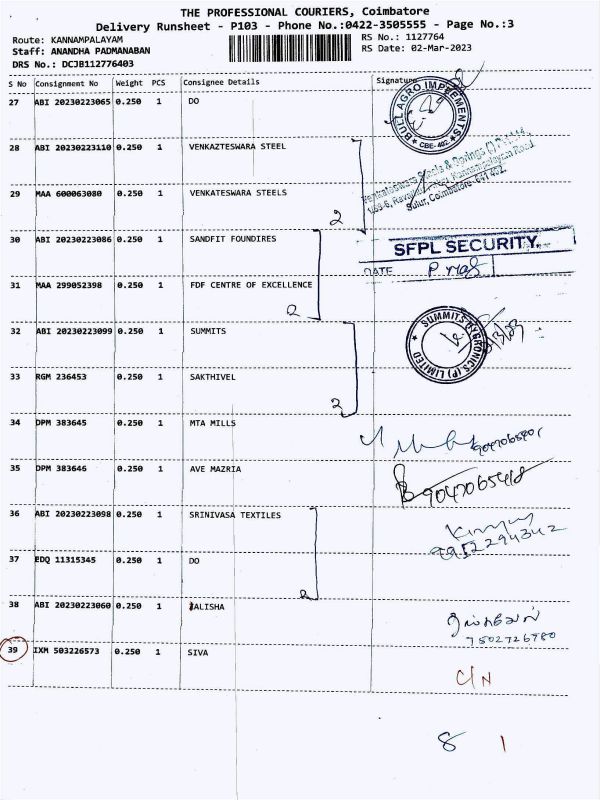 THE PROFESSIONAL COURIERS, Coimbatore
Delivery Runsheet - P103 - Phone No.:0422-3505555 - Page No.:3
Route: KANNAMPALAYAM
RS No.: 1127764
Staff: ANANDHA PADMANABAN
RS Date: 02-Mar-2023
DRS No.: DCJB112776403
S No Consignment No Weight PCS Consignee Details Signature
27 ABI 20230223065 0.250 1 DO
BULL AGRO IMPLEMENTS
CBE-402
28 ABI 20230223110 0.250 1 VENKAZTESWARA STEEL
Venkateswara Steels & Springs (I)
Kannampalayam Road
Sulur, Coimbatore-641 402.
29 MAA 600063080 0.250 1 VENKATESWARA STEELS
2
30 ABI 20230223086 0.250 1 SANDFIT FOUNDIRES
SFPL SECURITY
DATE
31 MAA 299052398 0.250 1 FDF CENTRE OF EXCELLENCE
2
32 ABI 20230223099 0.250 1 SUMMITS
SUMMITS HYGRONICS (P) LIMITED
33 RGM 236453 0.250 1 SAKTHIVEL
2
34 DPM 383645 0.250 1 MTA MILLS
35 DPM 383646 0.250 1 AVE MAZRIA
9047065418
36 ABI 20230223098 0.250 1 SRINIVASA TEXTILES
9952294342
37 EDQ 11315345 0.250 1 DO
2
38 ABI 20230223060 0.250 1 JALISHA
7502726980
39 IXM 503226573 0.250 1 SIVA
C/N
8 1